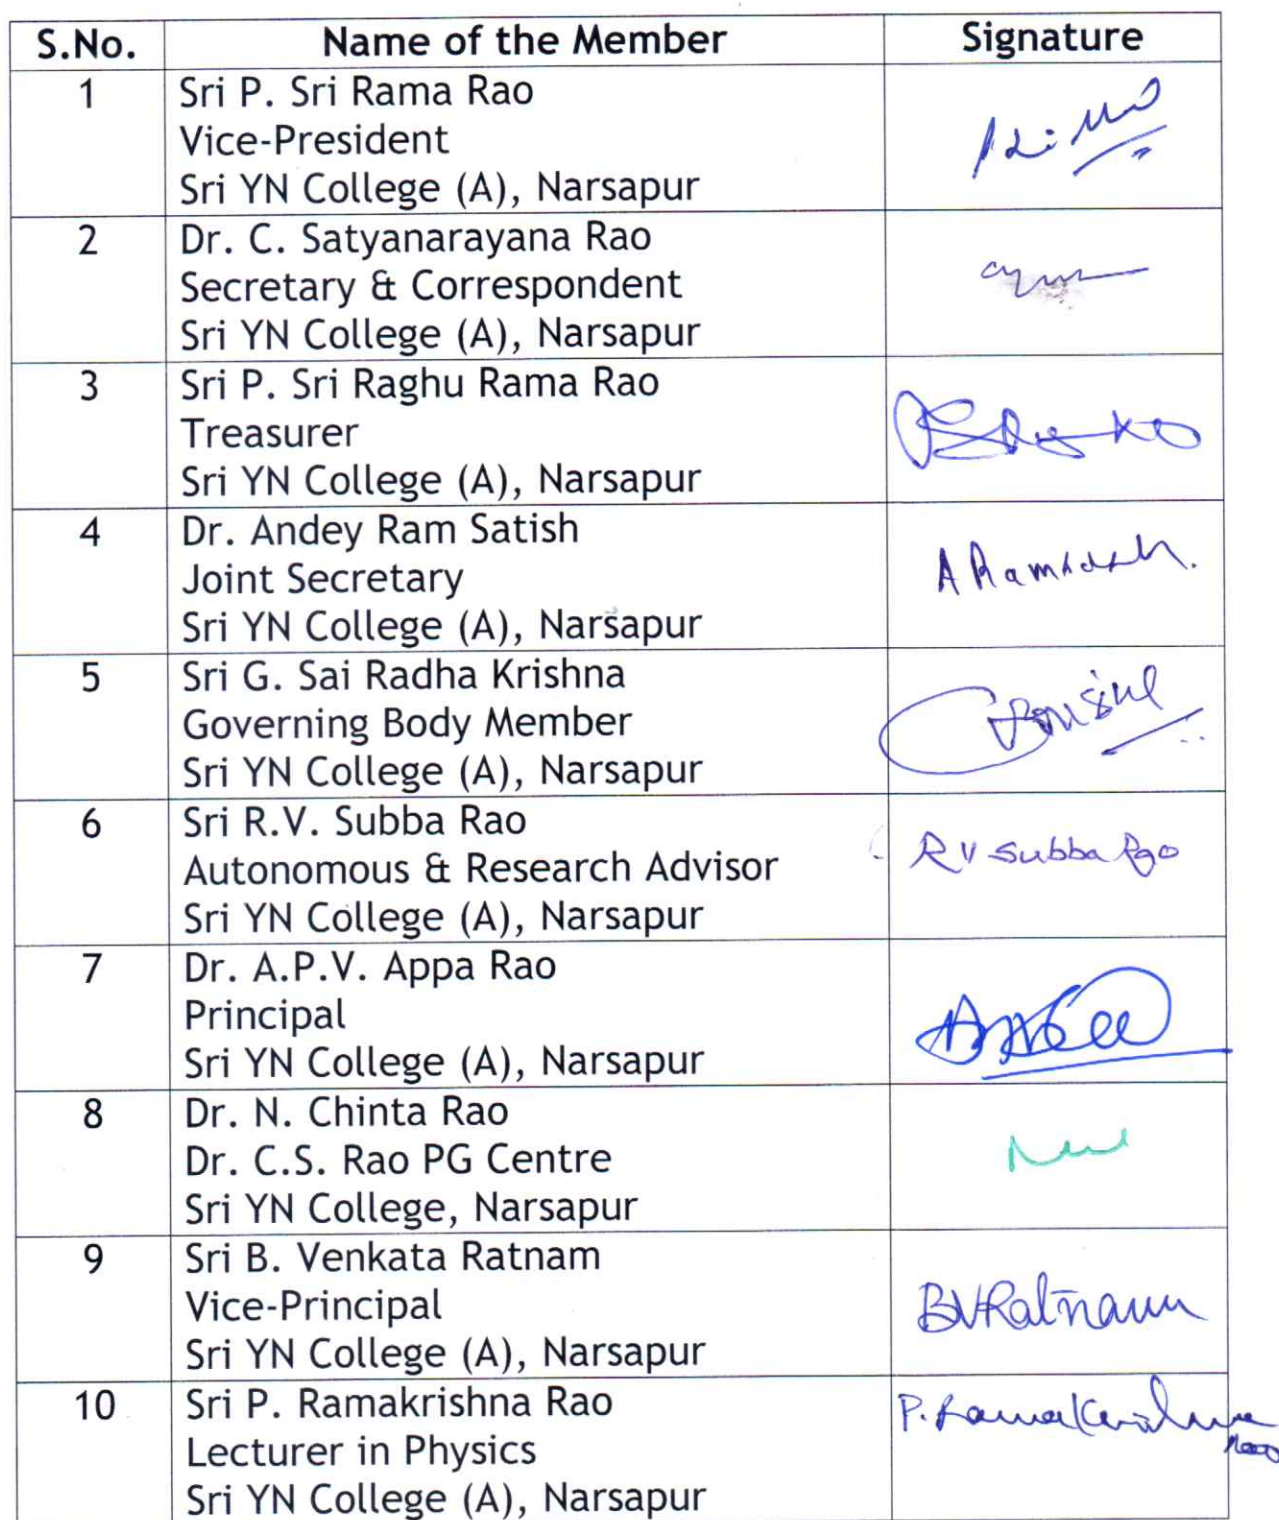 S.No. Name of the Member Signature
1 Sri P. Sri Rama Rao
Vice-President
Sri YN College (A), Narsapur
2 Dr. C. Satyanarayana Rao
Secretary & Correspondent
Sri YN College (A), Narsapur
3 Sri P. Sri Raghu Rama Rao
Treasurer
Sri YN College (A), Narsapur
4 Dr. Andey Ram Satish
Joint Secretary
Sri YN College (A), Narsapur
5 Sri G. Sai Radha Krishna
Governing Body Member
Sri YN College (A), Narsapur
6 Sri R.V. Subba Rao
Autonomous & Research Advisor R V Subba Rao
Sri YN College (A), Narsapur
7 Dr. A.P.V. Appa Rao
Principal
Sri YN College (A), Narsapur
8 Dr. N. Chinta Rao
Dr. C.S. Rao PG Centre
Sri YN College, Narsapur
9 Sri B. Venkata Ratnam
Vice-Principal BVRatnam
Sri YN College (A), Narsapur
10 Sri P. Ramakrishna Rao P. Ramakrishna
Lecturer in Physics Rao
Sri YN College (A), Narsapur